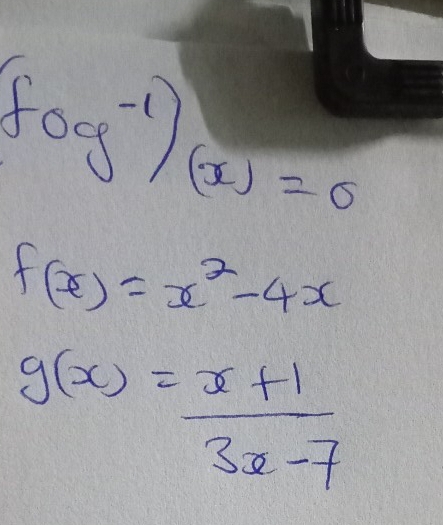 (fog⁻¹)(x) = 0
f(x) = x² - 4x
g(x) = x + 1
3x - 7